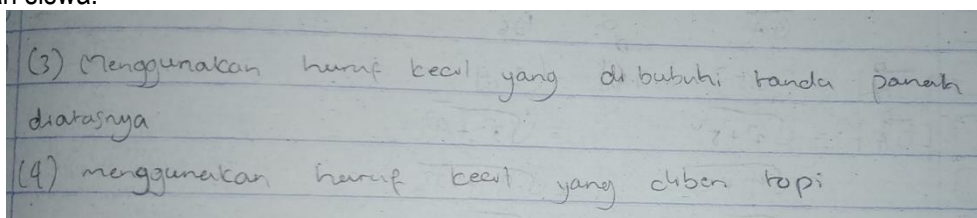 (3) Menggunakan huruf kecil yang di bubuhi tanda panah
diatasnya
(4) menggunakan huruf kecil yang diberi topi